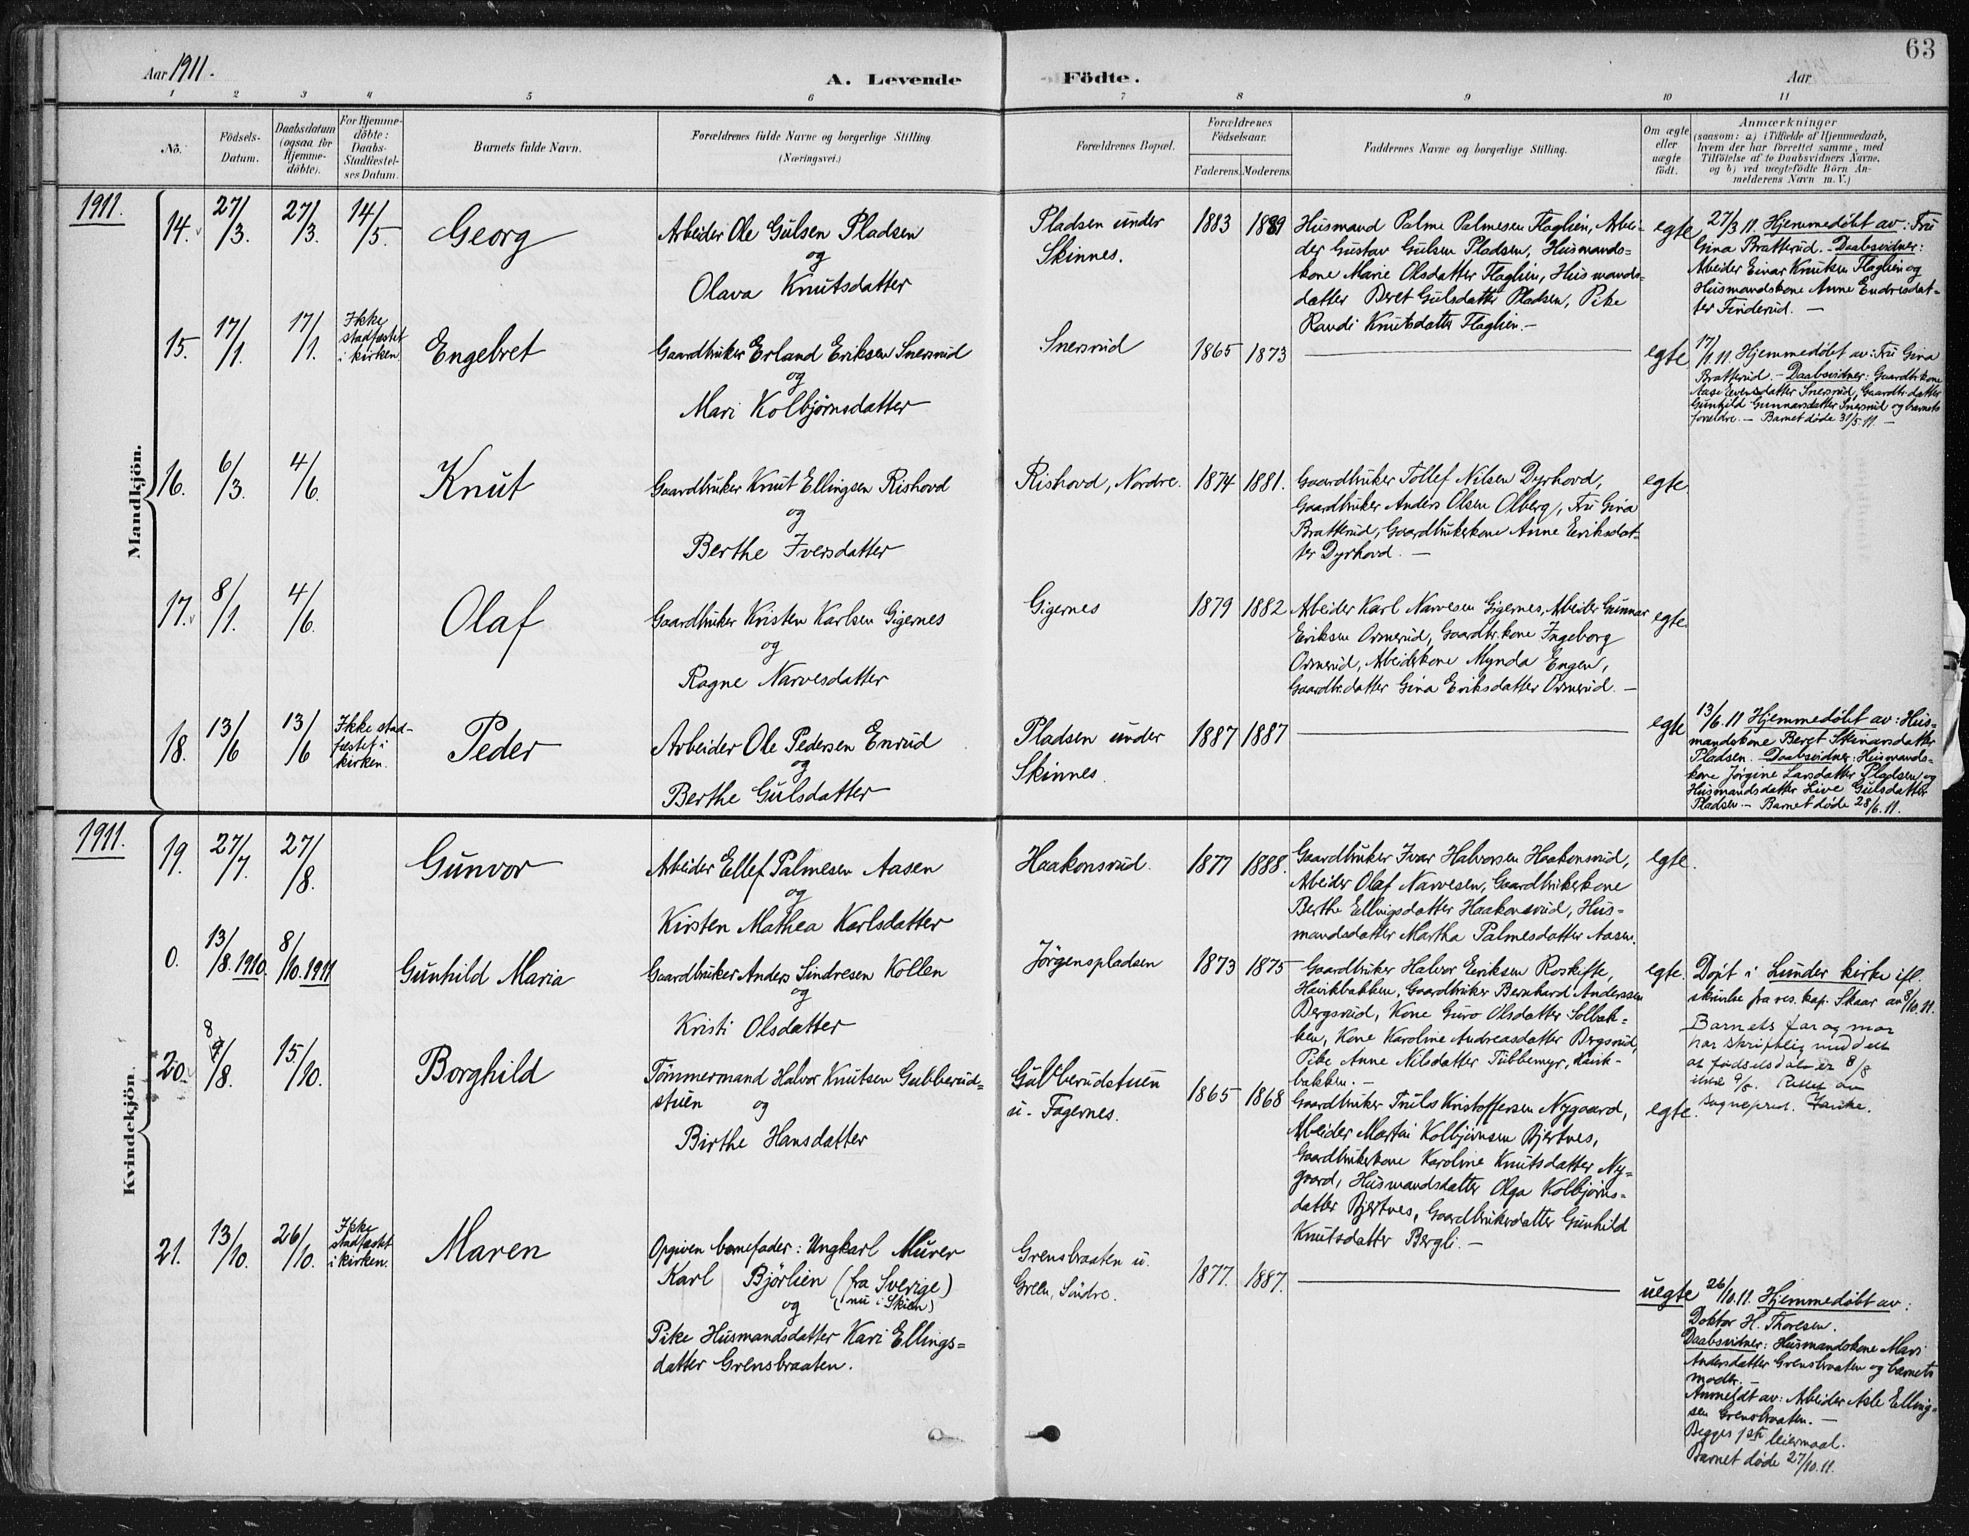 63
Aar 1911.
A. Levende Födte.
Aar
1 2 3 4 5 6 7 8 9 10 11
No.
Födsels-
Datum.
Daabsdatum
(ogsaa for
Hjemme-
döbte).
For Hjemme-
döbte:
Daabs-
Stadfæstel-
ses Datum.
Barnets fulde Navn.
Forældrenes fulde Navne og borgerlige Stilling.
(Næringsvei.)
Forældrenes Bopæl.
Forældrenes
Födselsaar.
Faderens. Moderens.
Faddernes Navne og borgerlige Stilling.
Om ægte
eller
uægte
födt.
Anmærkninger
(saasom: a.) i Tilfælde af Hjemmedaab,
hvem der har forrettet samme, med
Tilföielse af to Daabsvidners Navne,
og b.) ved uægtefödte Börn An-
melderens Navn m. V.)
1911.
Mandkjön.
14. 27/3. 27/3. 14/5. Georg
Arbeider Ole Gulsen Pladsen
og
Olava Knutsdatter
Pladsen under
Skinnes.
1883 1889
Husmand Palme Palmesen Flaglien, Arbei-
der Gustav Gulsen Pladsen, Husmands-
kone Marie Olsdatter Flaglien, Husmands-
datter Beret Gulsdatter Pladsen, Pike
Randi Knutsdatter Flaglien. —
egte
27/3 11. Hjemmedøbt av: Fru
Gina Bratterud. Daabsvidner:
Arbeider Einar Knutsen Flaglien og
Husmandskone Anne Endresdat-
ter Finderud. —
15. 17/1. 17/1. Ikke
stadfæstet
i kirken
Engebret
Gaardbruker Erland Eriksen Snersrud
og
Mari Kolbjørnsdatter
Snersrud
1865 1873
egte
17/1. 11. Hjemmedøbt av: Fru Gina
Bratterud. — Daabsvidner: Gaardbr.kone
Aase Evensdatter Snersrud, Gaardbr.datter
Gunhild Gunnarsdatter Snersrud og barnets
foreldre. — Barnet døde 31/5 11. —
16. 6/3. 4/6. Knut
Gaardbruker Knut Ellingsen Rishovd
og
Berthe Iversdatter
Rishovd, Nordre.
1874 1881.
Gaardbruker Tollef Nilsen Dyrhovd,
Gaardbruker Anders Olsen Olberg, Fru Gina
Bratterud, Gaardbrukerkone Anne Eriksdat-
ter Dyrhovd. —
egte.
17. 8/1. 4/6. Olaf
Gaardbruker Kristen Karlsen Gigernes
og
Ragne Narvesdatter
Gigernes
1879 1882
Arbeider Karl Narvesen Gigernes, Arbeider Gunnar
Eriksen Ormerud, Gaardbr.kone Ingeborg
Ormerud, Arbeiderkone Mynda Engen,
Gaardbr.datter Gina Eriksdatter Ormerud. —
egte.
18. 13/6 13/6 Ikke stad-
fæstet i
kirken.
Peder
Arbeider Ole Pedersen Enrud
og
Berthe Gulsdatter
Pladsen under
Skinnes.
1887 1887
egte
13/6. 11 Hjemmedøbt av: Hus-
mandskone Beret Steinarsdatter
Pladsen. Daabsvidner: Husmands-
kone Jørgine Larsdatter Pladsen, og
Husmandsdatter Live Gulsdatter
Pladsen — Barnet døde 28/6. 11.
1911.
Kvindekjön.
19. 27/7. 27/8. Gunvor
Arbeider Ellef Palmesen Aasen
og
Kirsten Mathea Karlsdatter
Haakonsrud.
1877 1888.
Gaardbruker Ivar Halvorsen Haakonsrud,
Arbeider Olaf Narvesen, Gaardbrukerkone
Berthe Ellingsdatter Haakonsrud, Hus-
mandsdatter Martha Palmesdatter Aasen.
egte.
0. 13/8. 1910. 8/10. 1911. Gunhild Maria
Gaardbruker Anders Sindresen Kollen
og
Kristi Olsdatter
Jørgenspladsen
1873 1875
Gaardbruker Halvor Eriksen Roskifte,
Haukbakken, Gaardbruker Bernhard Anderssen
Bergsrud, Kone Guro Olsdatter Solbak-
ken, Kone Karoline Andreasdatter Bergsrud,
Pike Anne Nilsdatter Tubbemyr, Hauk-
bakken. —
egte.
Døpt i Lunder kirke ifl.
skrivelse fra res. kap. Skaar av 8/10. 11.
20. 8 9/8. 15/10. Borghild
Tømmermand Halvor Knutsen Gubberud-
stuen og
Birthe Hansdatter
Gubberudstuen
u. Fagernes.
1865 1868
Gaardbruker Truls Kristoffersen Nygaard,
Arbeider Martin Kolbjørnsen Bjertnes,
Gaardbrukerkone Karoline Knutsdatter Ny-
gaard, Husmandsdatter Olga Kolbjørns-
datter Bjertnes, Gaardbrukerdatter Gunhild
Knutsdatter Bergli. —
egte.
Barnets far og mor
har skriftlig meddelt
at fødselsdatoen er 8/8
ikke 9/8. Rettet av
sogneprest.
21. 13/10. 26/10. Ikke
stadfæstet
i kirken.
Maren
Opgiven barnefader: Ungkarl Murer
Karl Bjørlien (fra Sverige)
og (nu i Skien)
Pike Husmandsdatter Kari Ellings-
datter Grensbraaten.
Grensbraaten u.
Green, Søndre.
1877. 1887.
uegte
26/10. 11. Hjemmedøbt av:
Doktor H. Thoresen.
Daabsvidner: Husmandskone Mari
Andersdatter Grensbraaten og barnets
moder. —
Anmeldt av: Arbeider Asle Elling-
sen Grensbraaten. —
Begges 1ste leiermaal.
Barnet døde 27/10. 11.